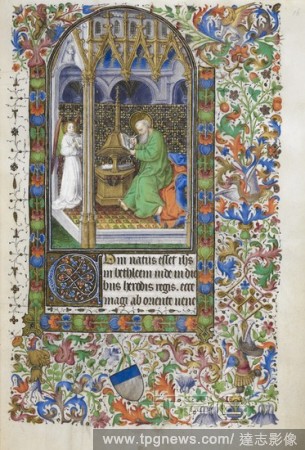 Cum natus esset ihs
in bethleem iude in die
bus herodis regis. ecce
magi ab oriente vene
www.tpgnews.com/ 達志影像